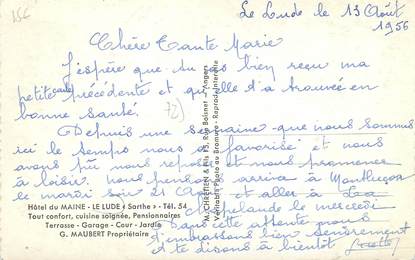 156
Le Lude le 13 Août
1956
Chère Tante Marie
J'espère que tu as bien reçu ma
petite carte précédente et qu'elle t'a trouvée en
bonne santé.
72)
Depuis une semaine que nous sommes
ici le temps nous a favorisé et nous
avons pu nous reposer et nous promener
à loisir. nous pensons arriver à Montluçon
le mardi soir 21 Août et aller à La
Chapelande le mercredi
Dans cette attente nous
t'embrassons bien sincèrement
et te disons à bientôt
Hôtel du MAINE - LE LUDE (Sarthe) - Tél. 54
Tout confort, cuisine soignée, Pensionnaires
Terrasse - Garage - Cour - Jardin
G. MAUBERT Propriétaire
M. CHRETIEN & Fils 13, Rue Boisnet - Angers
Véritable Photo au Bromure - Reprod. Interdite